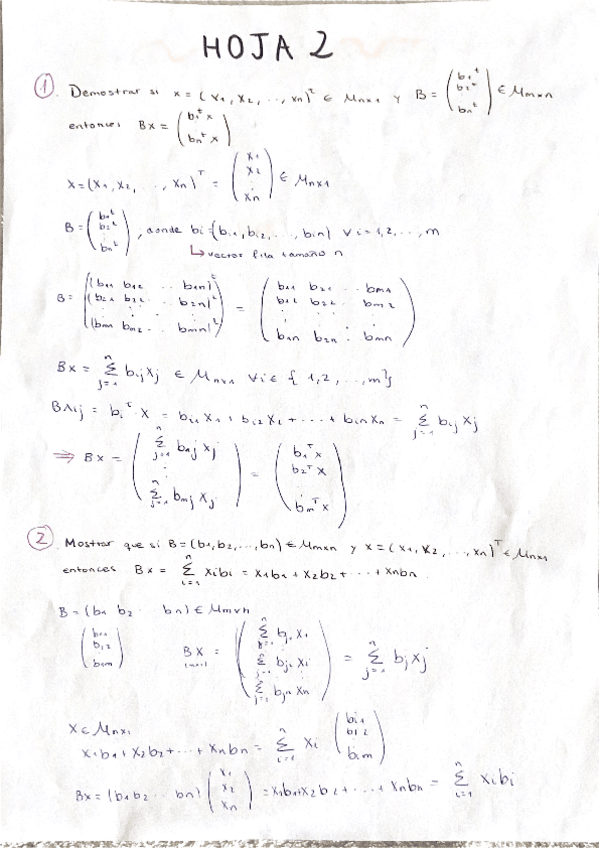 HOJA 2
① Demostrar si x = (x1, x2, ..., xn)^t ∈ Mnx1 y B = (b1^t b2^t : bn^t) ∈ Mmxn
entonces Bx = (b1^t x : bn^t x)
X = (x1, x2, ..., xn)^T = (x1 x2 : xn) ∈ Mnx1
B = (b1^t b2^t : bn^t), donde bi = (bi1, bi2, ..., bin) ∀ i = 1, 2, ..., m
↳ vector fila tamaño n
B = ((b11 b12 .. b1n)^t (b21 b22 .. b2n)^t : (bm1 bm2 .. bmn)^t) = (b11 b21 .. bm1 b12 b22 .. bm2 : b1n b2n : bmn)
Bx = Σ_{j=1}^n bij xj ∈ Mnx1 ∀ i ∈ {1, 2, ..., m}
= bi^t · X = bi1 X1 + bi2 X2 + ... + bin Xn = Σ_{j=1}^n bij Xj
⇒ Bx = (Σ_{j=1}^n b1j xj : Σ_{j=1}^n bmj xj) = (b1^T x b2^T x : bm^T x)
② Mostrar que si B = (b1, b2, ..., bn) ∈ Mmxn y x = (x1, x2, ..., xn)^T ∈ Mnx1
entonces Bx = Σ_{i=1}^n xibi = x1b1 + x2b2 + ... + xnbn
B = (b1 b2 bn) ∈ Mmxn
(b11 b12 : b1m) BX = (Σ bj1 x1 : Σ bji xi : Σ bjn xn) = Σ_{j=1}^n bj xj
X ∈ Mnx1
x1b1 + x2b2 + ... + xnbn = Σ_{i=1}^n xi (bi1 bi2 : bim)
Bx = (b1 b2 .. bn) (x1 x2 : xn) = x1b1+x2b2 + ... + xnbn = Σ_{i=1}^n xibi